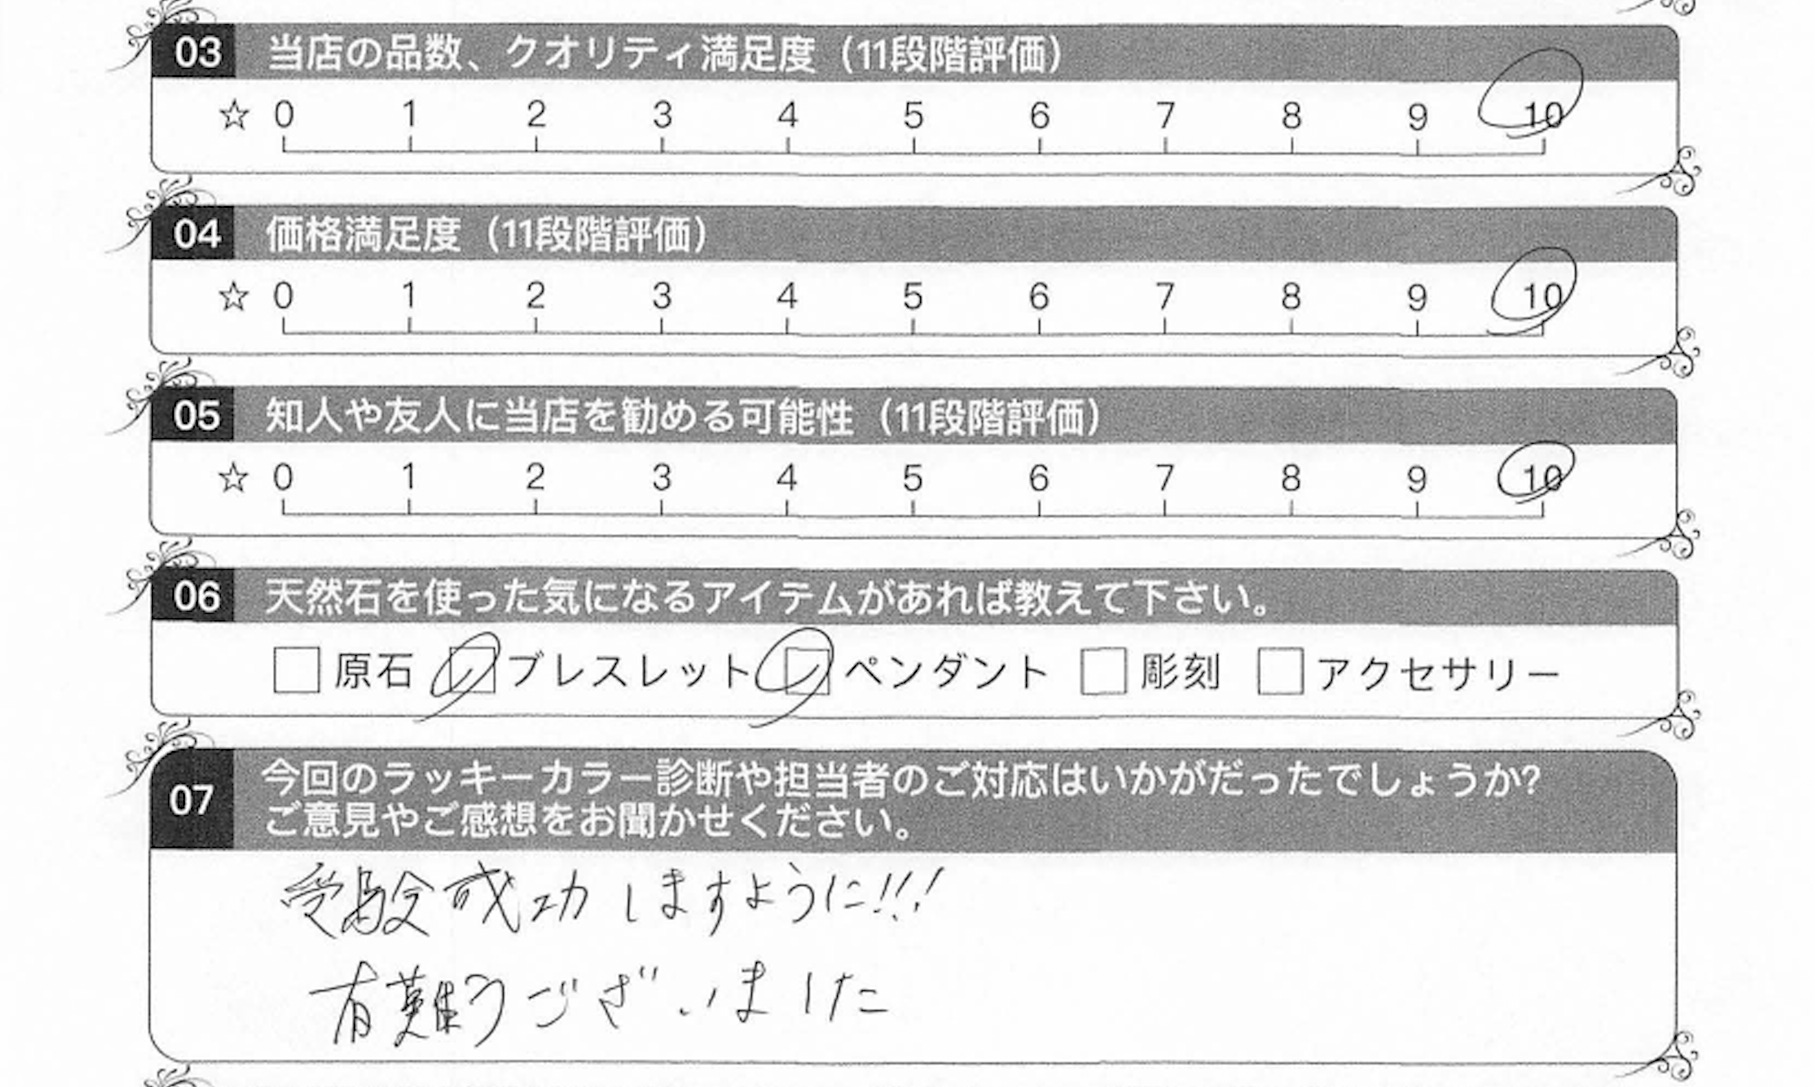 03 当店の品数、クオリティ満足度（11段階評価）
☆ 0 1 2 3 4 5 6 7 8 9 10
04 価格満足度（11段階評価）
☆ 0 1 2 3 4 5 6 7 8 9 10
05 知人や友人に当店を勧める可能性（11段階評価）
☆ 0 1 2 3 4 5 6 7 8 9 10
06 天然石を使った気になるアイテムがあれば教えて下さい。
□原石 □ブレスレット □ペンダント □彫刻 □アクセサリー
07 今回のラッキーカラー診断や担当者のご対応はいかがだったでしょうか?
ご意見やご感想をお聞かせください。
受験成功しますように!!!
有難うございました